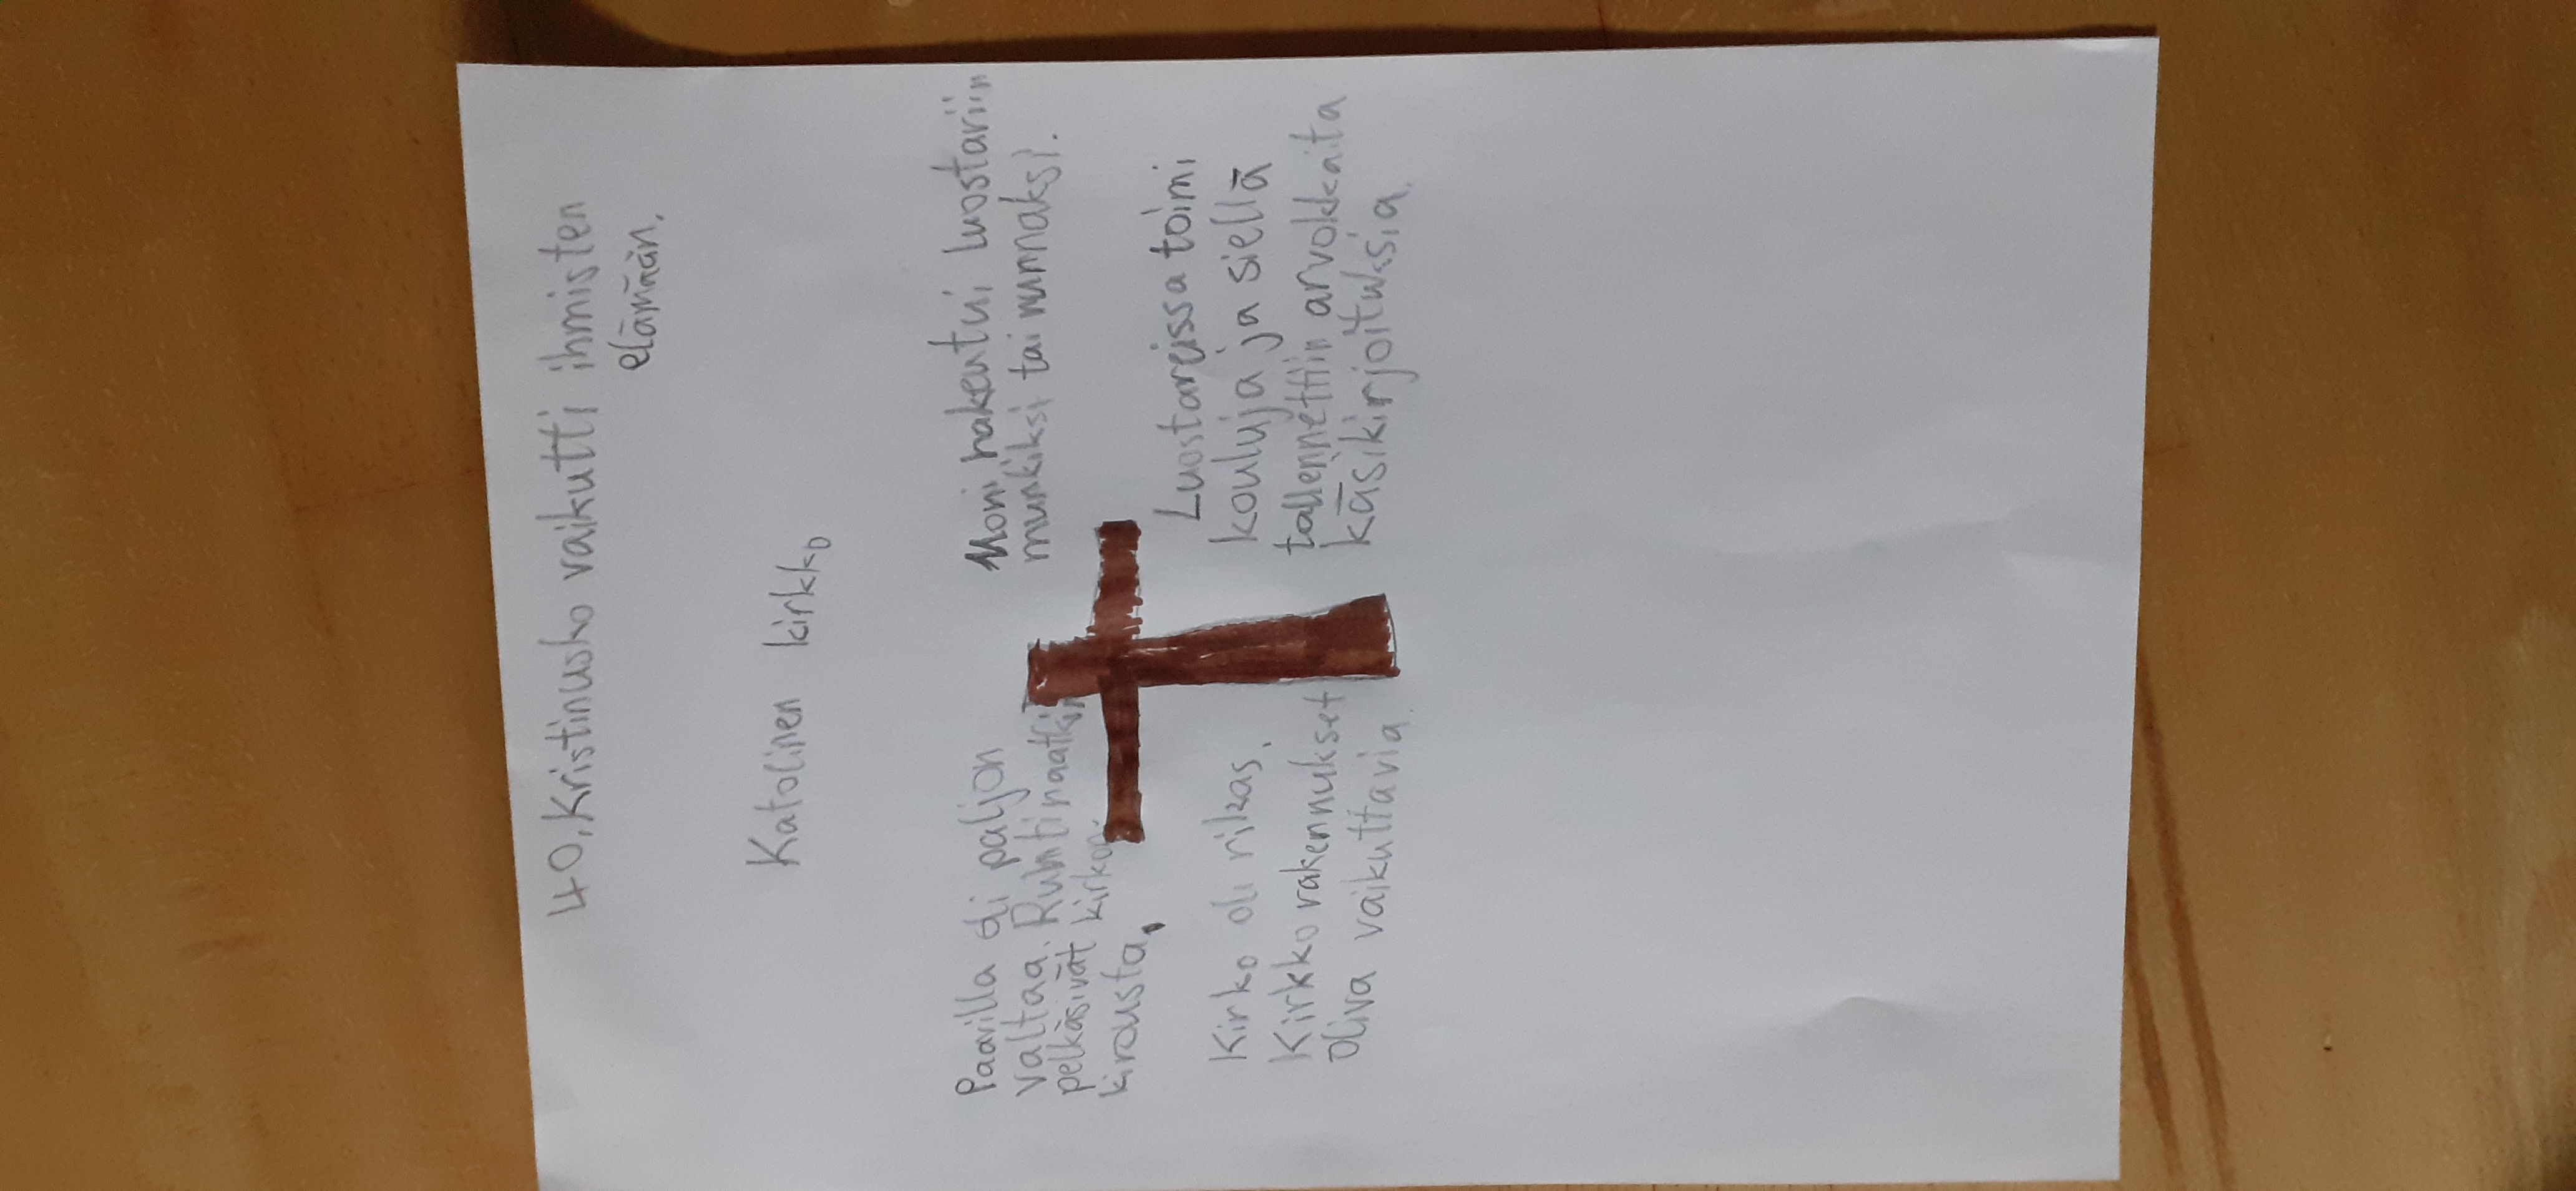 40. Kristinusko vaikutti ihmisten
elämään.
Katolinen kirkko
Paavilla oli paljon
valtaa. Ruhtinaatkin
pelkäsivät kirkon
kirousta.
Moni hakeutui luostariin
munkiksi tai nunnaksi.
Kirko oli rikas.
Kirkko rakennukset
oliva vaikuttavia.
Luostareissa toimi
kouluja ja siellä
tallennettiin arvokkaita
käsikirjoituksia.